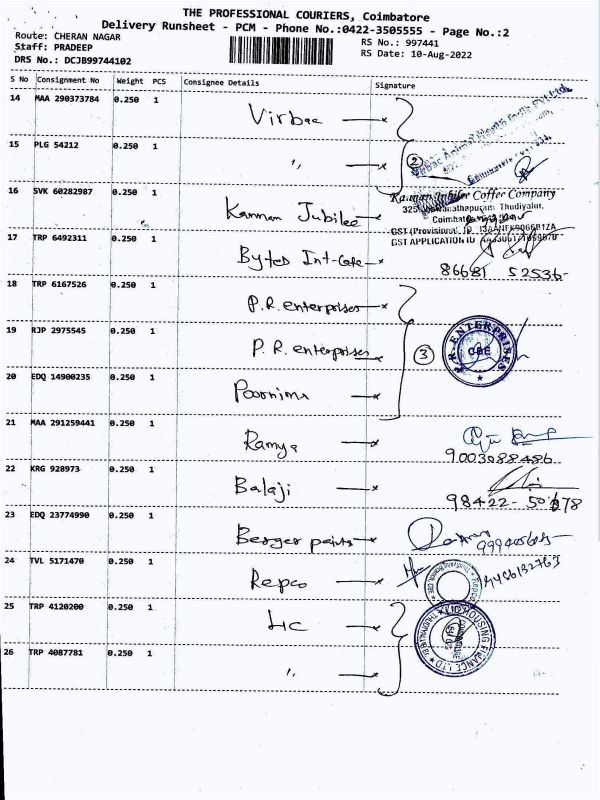 THE PROFESSIONAL COURIERS, Coimbatore
Delivery Runsheet - PCM - Phone No.:0422-3505555 - Page No.:2
Route: CHERAN NAGAR
RS No.: 997441
Staff: PRADEEP
RS Date: 10-Aug-2022
DRS No.: DCJB99744102
S No Consignment No Weight PCS Consignee Details Signature
14 MAA 290373784 0.250 1 Virbac
15 PLG 54212 0.250 1 〃 2
16 SVK 60282987 0.250 1 Kannan Jubilee
Kannan Jubilee Coffee Company
Thudiyalur,
GST (Provisional ID
GST APPLICATION ID
17 TRP 6492311 0.250 1 Bytes Int-Cafe
86681 52536-
18 TRP 6167526 0.250 1 P.R. enterprises
19 RJP 2975545 0.250 1 P.R. enterprises 3
P.R. ENTERPRISES
CBE
20 EDQ 14900235 0.250 1 Poornima
21 MAA 291259441 0.250 1 Ramya
9003088486
22 KRG 928973 0.250 1 Balaji
98422-
23 EDQ 23774990 0.250 1 Berger paints
24 TVL 5171470 0.250 1 Repco
25 TRP 4120200 0.250 1 LIC
LIC HOUSING FINANCE LTD
26 TRP 4087781 0.250 1 〃